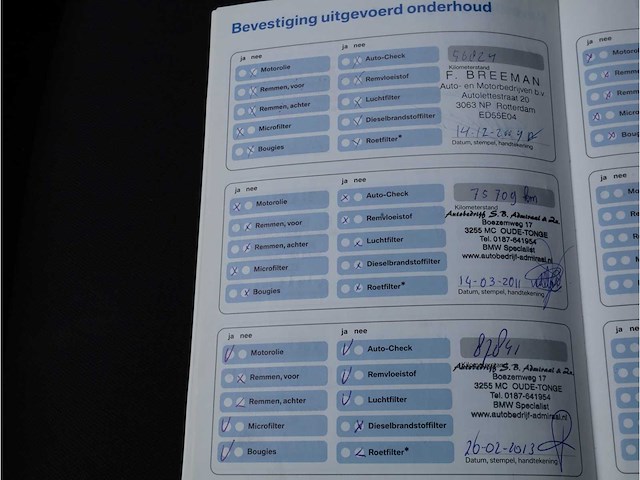 Bevestiging uitgevoerd onderhoud
ja nee
ja nee
Motorolie
Remmen, voor
Remmen, achter
Microfilter
Bougies
Auto-Check
Remvloeistof
Luchtfilter
Dieselbrandstoffilter
Roetfilter*
Kilometerstand
F. BREEMAN
Auto- en Motorbedrijven b.v.
Autolettestraat 20
3063 NP Rotterdam
ED55E04
Datum, stempel, handtekening
ja nee
ja nee
Motorolie
Remmen, voor
Remmen, achter
Microfilter
Bougies
Auto-Check
Remvloeistof
Luchtfilter
Dieselbrandstoffilter
Roetfilter*
75709 km
Kilometerstand
Autobedrijf S.B. Admiraal & Zn.
Boezemweg 17
3255 MC OUDE-TONGE
Tel. 0187-641954
BMW Specialist
www.autobedrijf-admiraal.nl
14-03-2011
Datum, stempel, handtekening
ja nee
ja nee
Motorolie
Remmen, voor
Remmen, achter
Microfilter
Bougies
Auto-Check
Remvloeistof
Luchtfilter
Dieselbrandstoffilter
Roetfilter*
87841
Autobedrijf S.B. Admiraal & Zn.
Boezemweg 17
3255 MC OUDE-TONGE
Tel. 0187-641954
BMW Specialist
www.autobedrijf-admiraal.nl
26-02-2013
Datum, stempel, handtekening